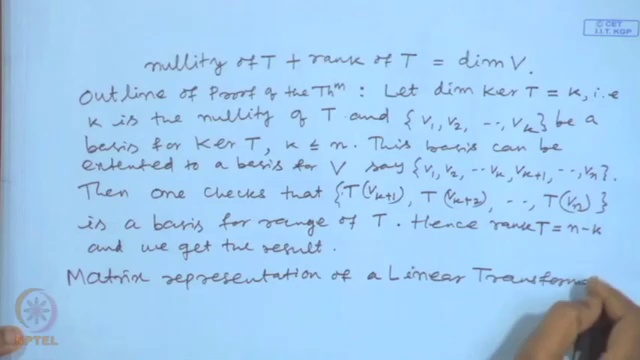 © CET
I.I.T. KGP
nullity of T + rank of T = dim V.
Outline of Proof of the Thᵐ : Let dim Ker T = k, i.e
k is the nullity of T and {v₁, v₂, ..., vₖ} be a
basis for Ker T, k ≤ n. This basis can be
extented to a basis for V say {v₁, v₂, ... vₖ, vₖ₊₁, ..., vₙ}.
Then one checks that {T(vₖ₊₁), T(vₖ₊₂), ..., T(vₙ)}
is a basis for range of T. Hence rank T = n-k
and we get the result.
Matrix representation of a Linear Transforma
NPTEL